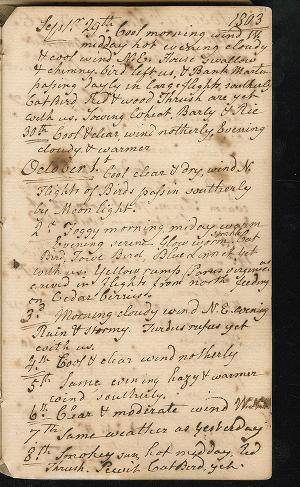 1803
Sept. 29th Cool morning wind W
midday hot evening cloudy
& cool wind N.E. House Swallow
& chimny bird left us, & Bank Martin
passing dayly in large flights, southerly
Catbird Red & wood Thrush are yet
with us. Sowing Wheat Barly & Rie
30th Cool & clear wind notherly, Evening
cloudy & warmer
October 1st Cool clear & dry, wind N.
Flights of Birds passin southerly
by Moon light.
2d Foggy morning midday warm
Evening serene Glow worm, Cat
Bird, Towe Bird, Blue Linnet yet
with us. Yellow rump
in flights from north feeding
on Cedar berries.
3d Morning cloudy wind N.E. evening
Rain & stormy. Turdus rufus yet
with us.
4th Cool & clear wind notherly
5th Same evening hazy & warmer
wind southerly.
6th Clear & moderate wind
7th Same weather as yesterday
8th Smokey sun hot midday. Red
Thrush. Pewit Cat Bird, yet.